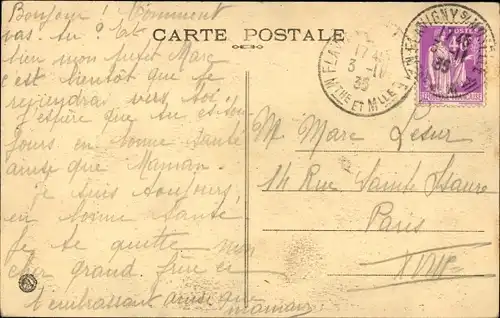 CARTE POSTALE
Bonjour ! Comment
vas. tu ? Et
bien mon petit Marc
c'est bientôt que je
reviendrai vers toi.
J'espère que tu es tou-
jours en bonne santé
ainsi que Maman.
je suis toujours
en bonne santé
Je te quitte mon
cher grand frère en
t'embrassant ainsi que
maman
FLAVIGNY S/MOSELLE
17 45
3 - 11
35
Mthe ET Mlle
POSTES
40
M Marc Lesur
14 Rue Sainte Isaure
Paris
XVIIIe